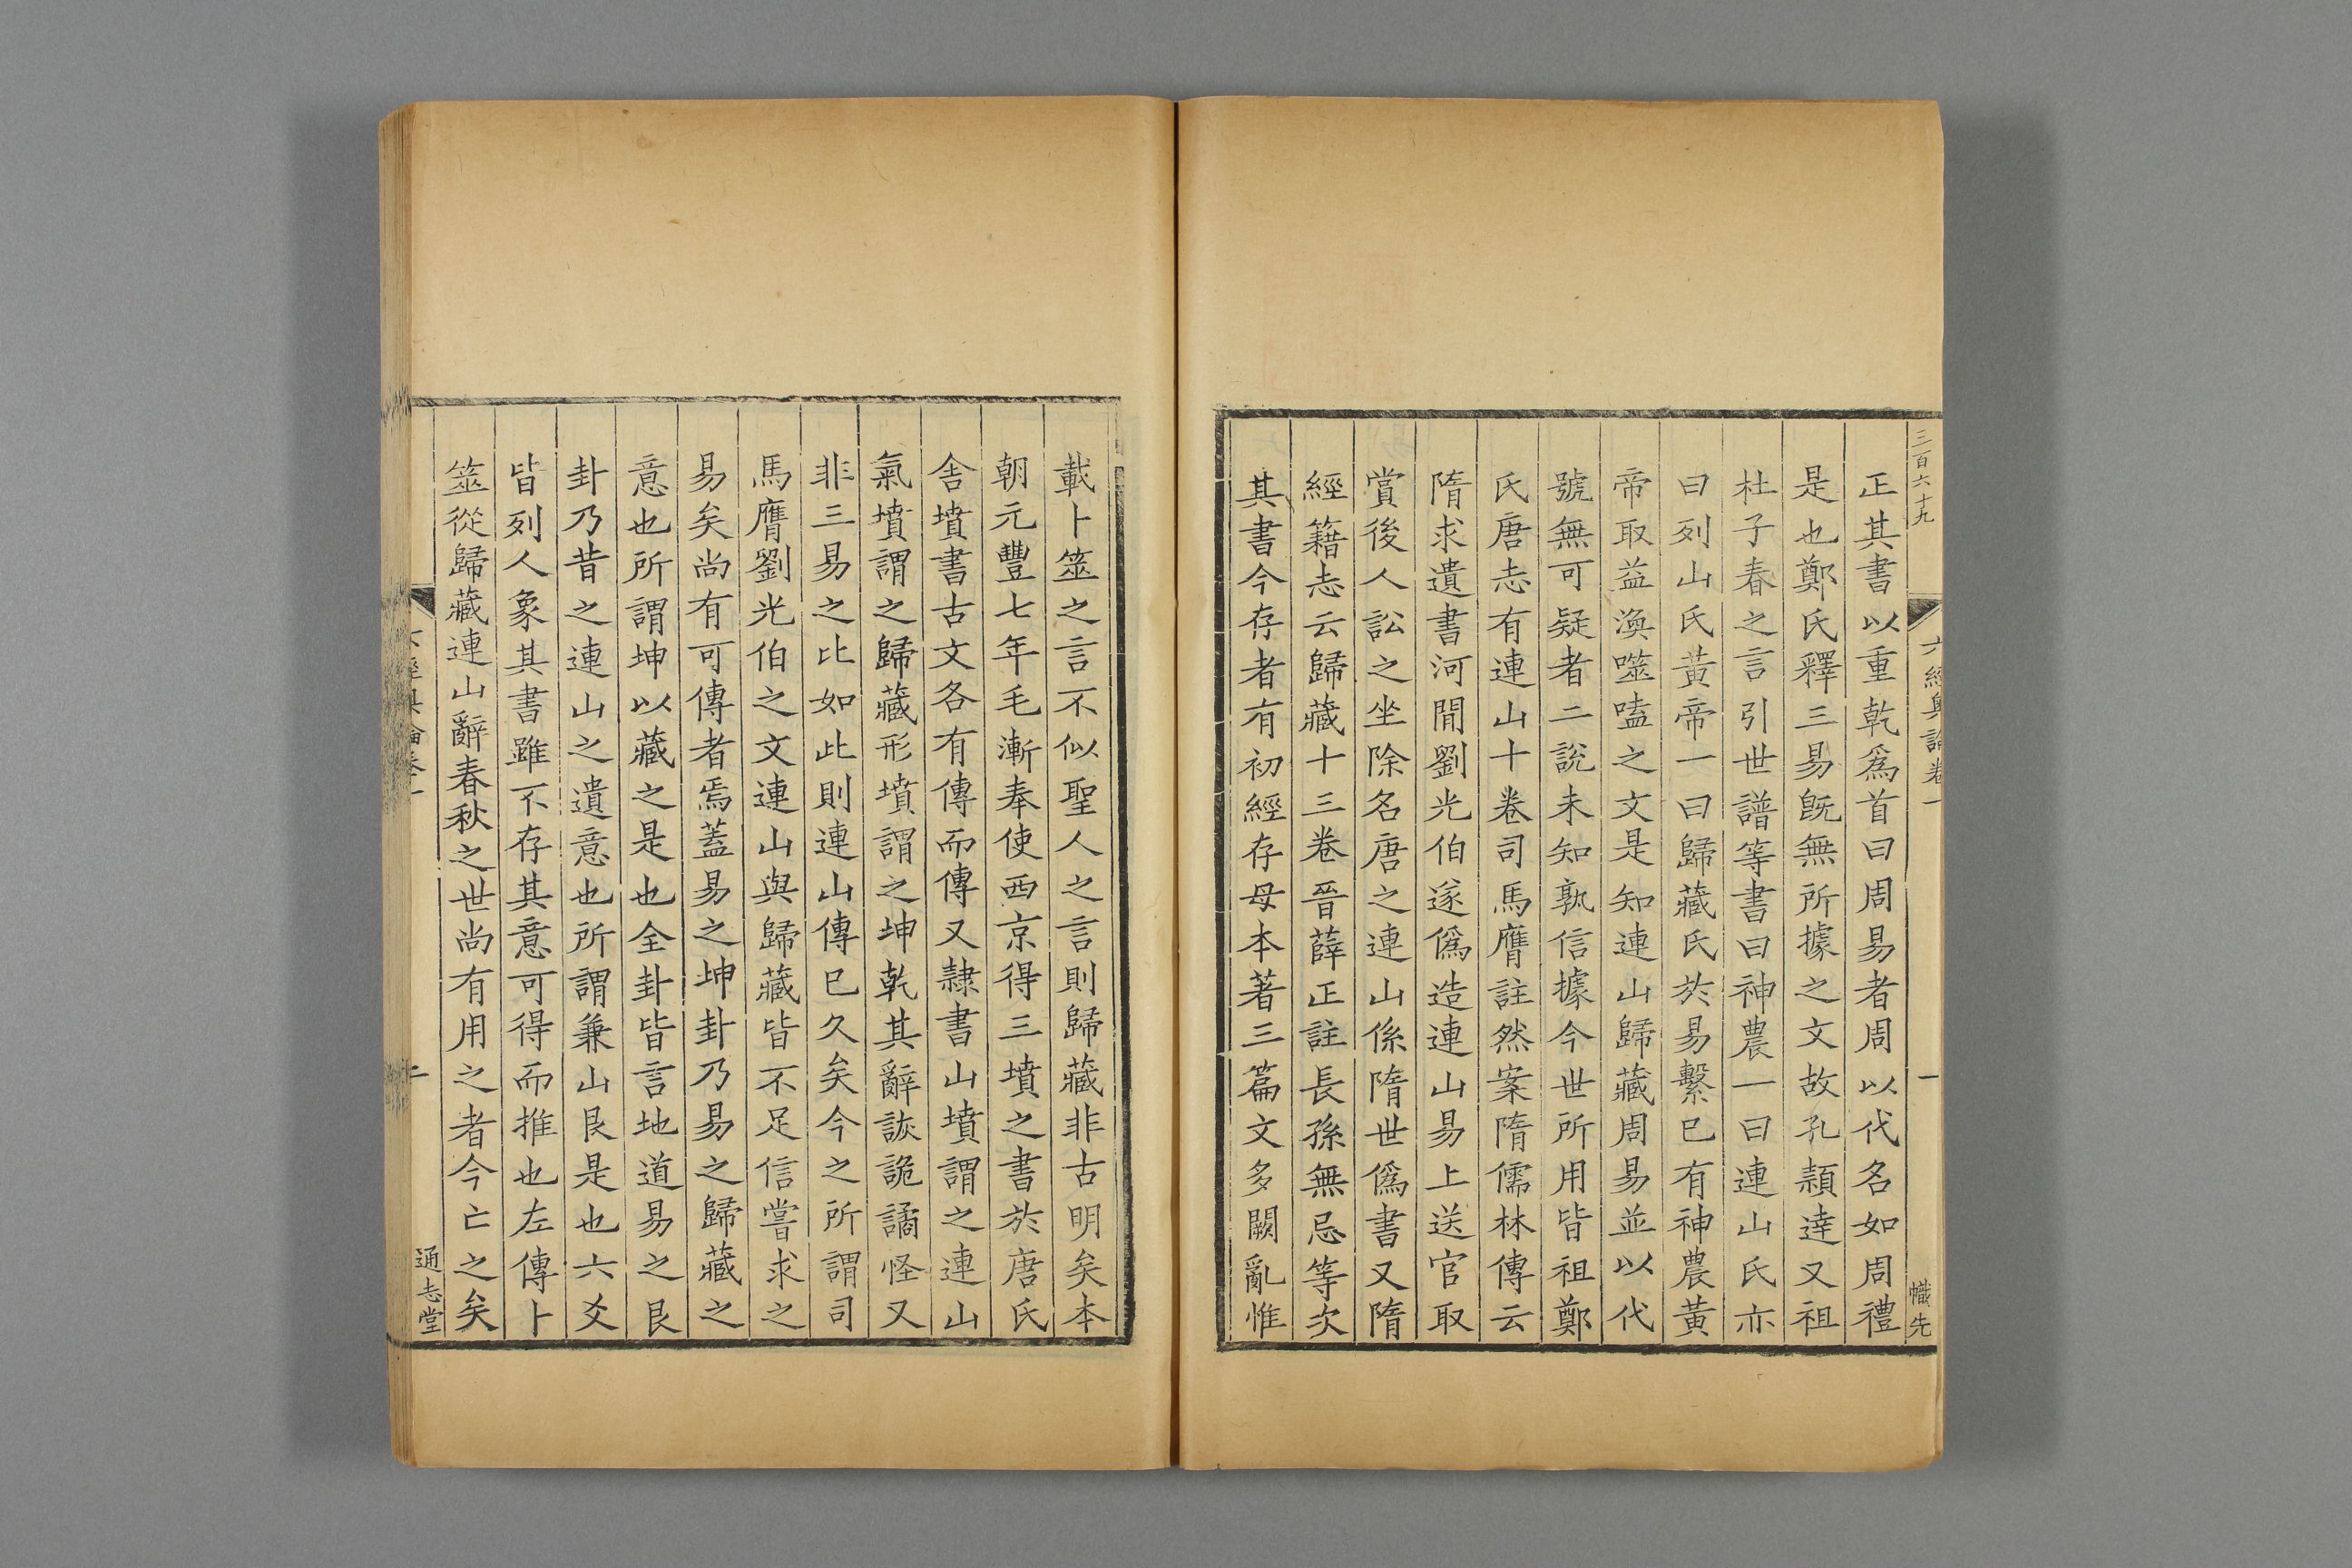 三百六十九
六經奧論卷一
一
幟先
正其書以重乾爲首曰周易者周以代名如周禮
是也鄭氏釋三易旣無所據之文故孔頴逹又祖
杜子春之言引世譜等書曰神農一曰連山氏亦
曰列山氏黃帝一曰歸藏氏於易繫已有神農黃
帝取益渙噬嗑之文是知連山歸藏周易並以代
號無可疑者二說未知孰信據今世所用皆祖鄭
氏唐志有連山十卷司馬膺註然案隋儒林傳云
隋求遺書河閒劉光伯遂僞造連山易上送官取
賞後人訟之坐除名唐之連山係隋世僞書又隋
經籍志云歸藏十三卷晉薛正註長孫無忌等次
其書今存者有初經存母本著三篇文多闕亂惟
載卜筮之言不似聖人之言則歸藏非古明矣本
朝元豐七年毛漸奉使西京得三墳之書於唐氏
舍墳書古文各有傳而傳又隸書山墳謂之連山
氣墳謂之歸藏形墳謂之坤乾其辭詼詭譎怪又
非三易之比如此則連山傳已久矣今之所謂司
馬膺劉光伯之文連山與歸藏皆不足信嘗求之
易矣尚有可傳者焉蓋易之坤卦乃易之歸藏之
意也所謂坤以藏之是也全卦皆言地道易之艮
卦乃昔之連山之遺意也所謂兼山艮是也六爻
皆列人象其書雖不存其意可得而推也左傳卜
筮從歸藏連山辭春秋之世尚有用之者今亡之矣
六經奧論卷一
二
通志堂